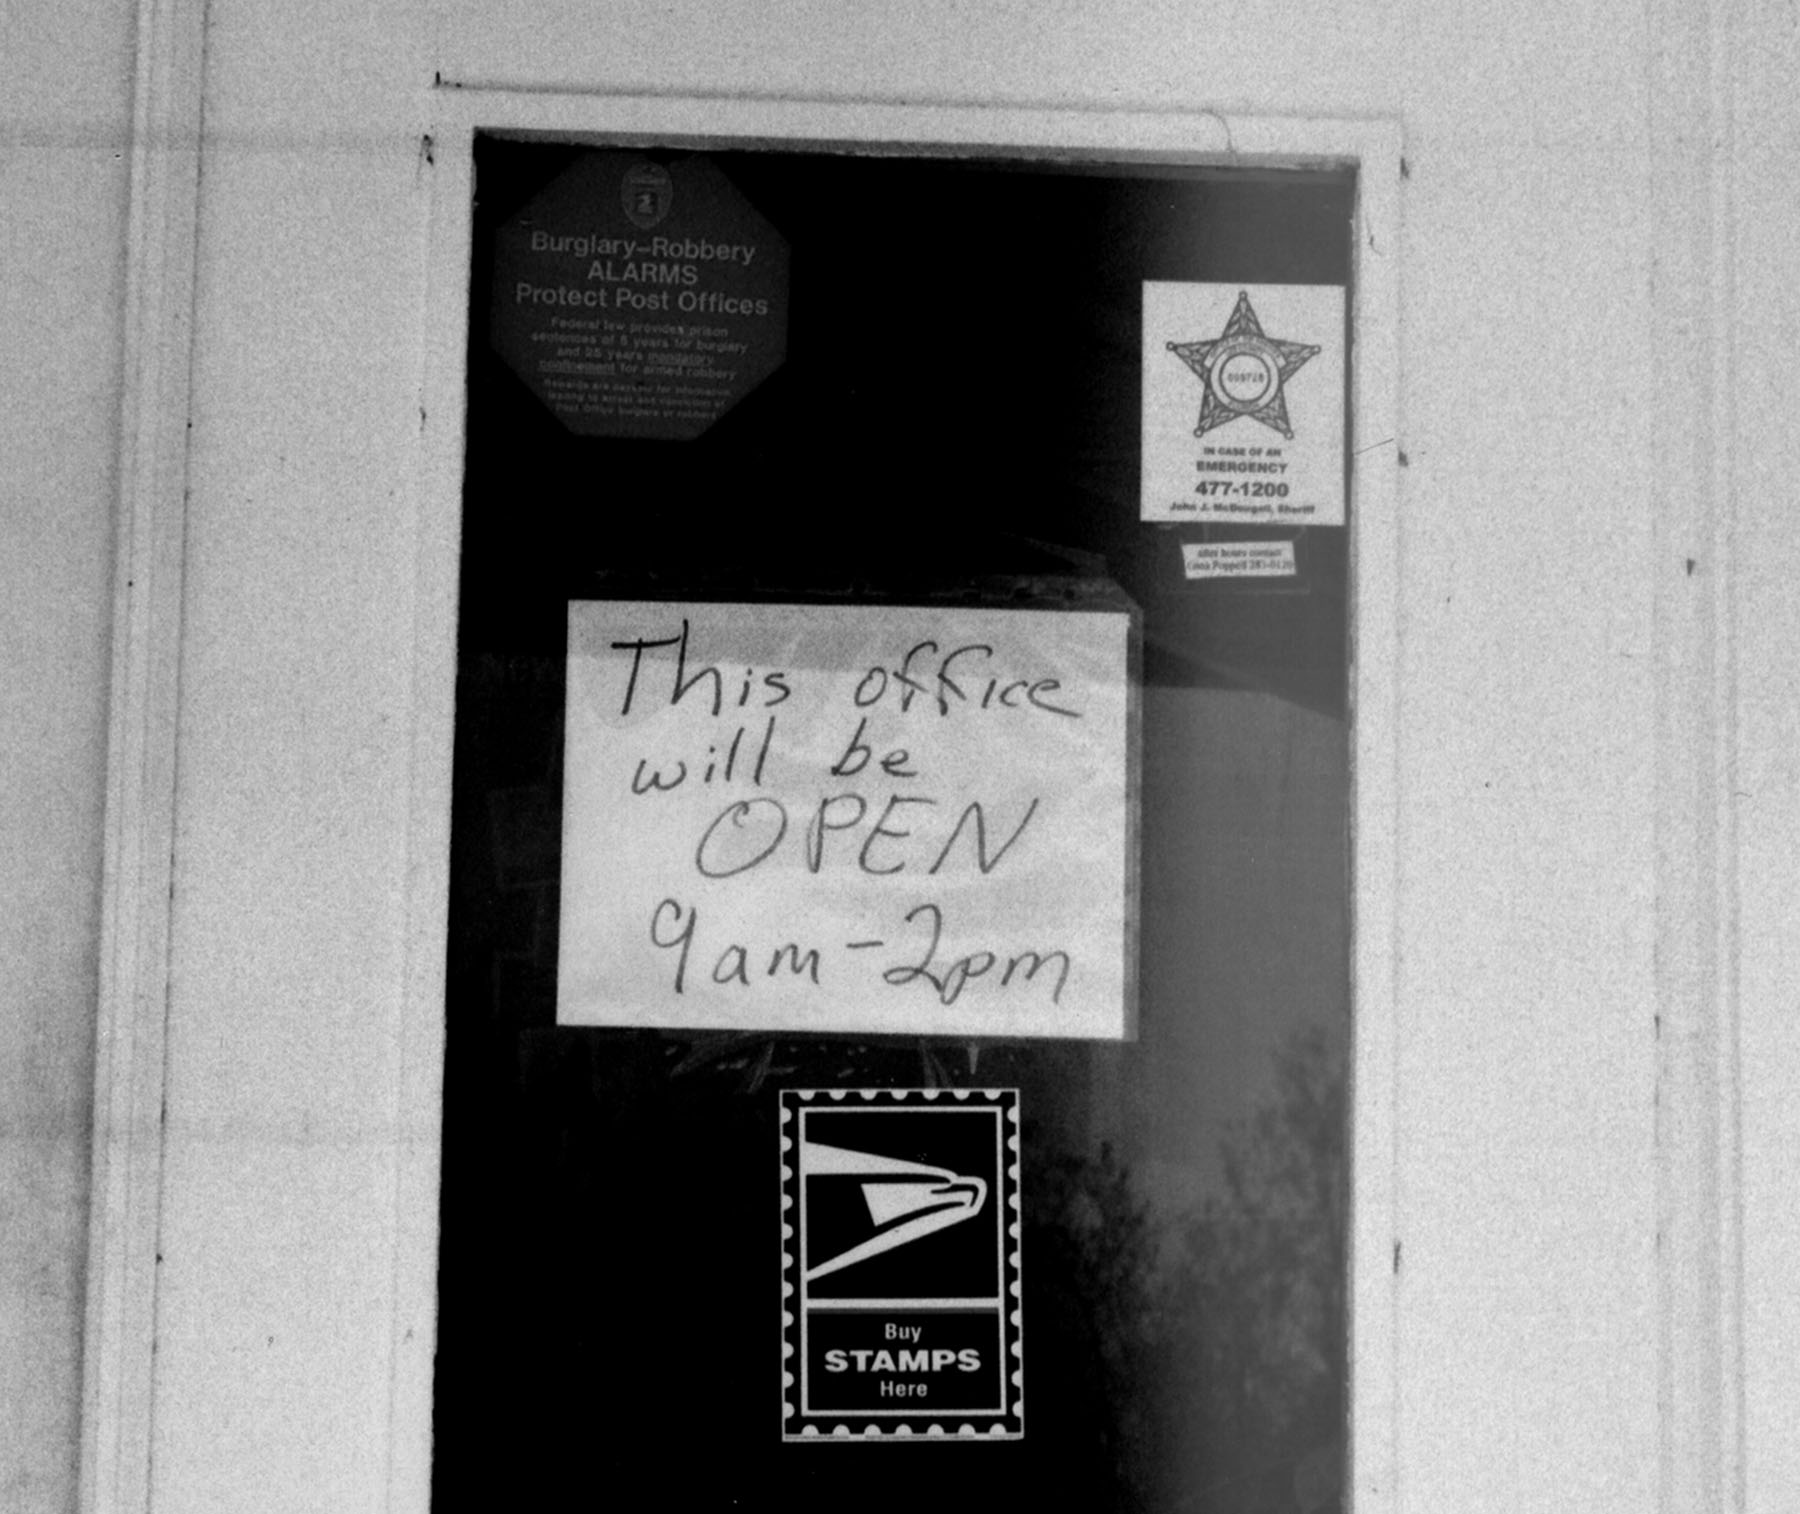 Burglary–Robbery
ALARMS
Protect Post Offices
Federal law provides prison
sentences of 5 years for burglary
and 25 years mandatory
confinement for armed robbery
Rewards are payable for information
leading to arrest and conviction of
Post Office burglars or robbers
IN CASE OF AN
EMERGENCY
477-1200
John J. McDougall, Sheriff
after hours contact
Poppell 283-0120
This office
will be
OPEN
9am-2pm
Buy
STAMPS
Here